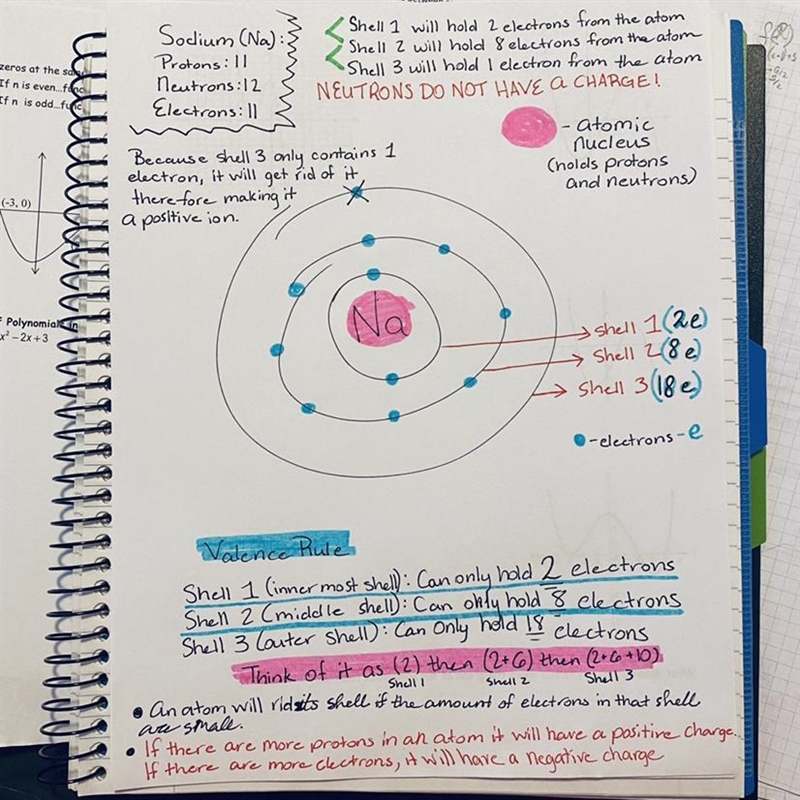 Sodium (Na):
Protons: 11
Neutrons: 12
Electrons: 11
Shell 1 will hold 2 electrons from the atom
Shell 2 will hold 8 electrons from the atom
Shell 3 will hold 1 electron from the atom
NEUTRONS DO NOT HAVE A CHARGE!
- atomic
nucleus
(holds protons
and neutrons)
Because shell 3 only contains 1
electron, it will get rid of it
therefore making it
a positive ion.
Na
Shell 1 (2e)
Shell 2 (8e)
Shell 3 (18e)
- electrons - e
Valence Rule
Shell 1 (inner most shell): Can only hold 2 electrons
Shell 2 (middle shell): Can only hold 8 electrons
Shell 3 (outer shell): Can only hold 18 electrons
Think of it as (2) then (2+6) then (2+6+10)
Shell 1 Shell 2 Shell 3
• An atom will rid its shell if the amount of electrons in that shell
are small.
• If there are more protons in an atom it will have a positive charge.
If there are more electrons, it will have a negative charge
zeros at the
If n is even...
If n is odd...
(-3, 0)
Polynomials
x² − 2x + 3